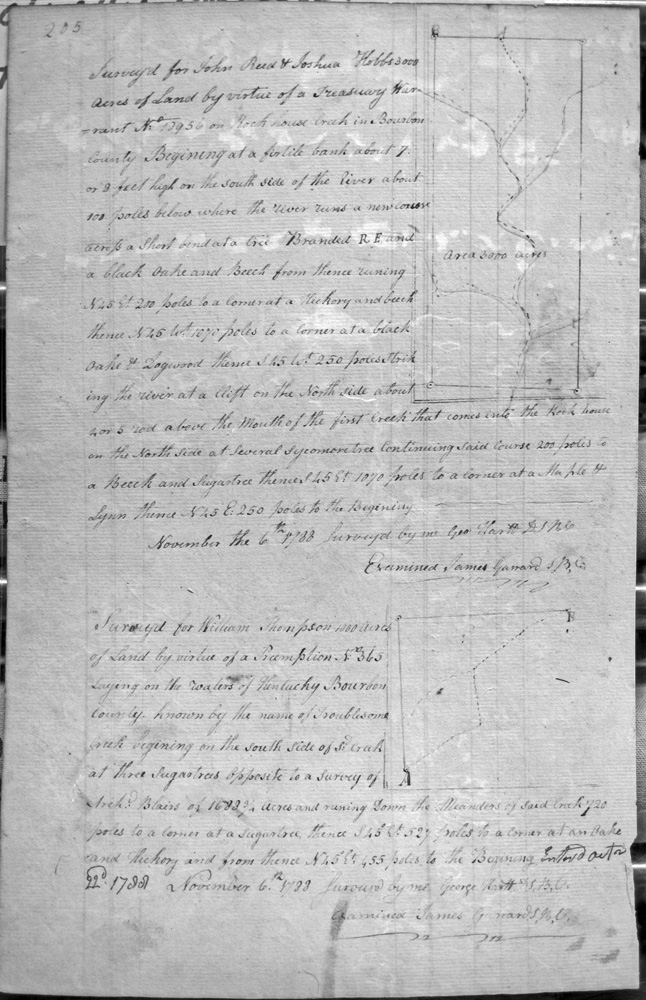 205
B A
Survey'd for John Reed & Joshua Hobbs 3000
acres of Land by virtue of a Treasury War
=rant No. 18956 on Rock house Creek in Bourbon
County Begining at a fertile bank about 7.
or 8 feet high on the south side of the River about
100 poles below where the river runs a new course
across a Short bend at a tree Branded R E and
a black Oake and Beech from thence runing
Area 3000 acres
N 45 Et 200 poles to a Corner at a Hickory and beech
thence N 45 Wt 1070 poles to a Corner at a black
Oake & Dogwood thence S 45 Wt 250 poles Strik
ing the river at a Clift on the North side about
4 or 5 rod above the Mouth of the first Creek that comes into the Rock house
on the North side at Several Sycomore tree Continuing said Course 200 poles to
a Beech and Sugartree thence S 45 Et 1070 poles to a Corner at a Maple &
Lynn thence N 45 E. 250 poles to the Begining
November the 6th 1788 Survey'd by me Geo Hartt D S B C
Examined James Garrard S. B. C.
Survey'd for William Thompson 1000 acres
of Land by virtue of a Preemption No 365
Laying on the waters of Kentucky Bourbon
County. known by the name of Troublesome
Creek begining on the south side of sd Creek
at three Sugartrees Opposite to a Survey of
B
A
Archd. Blairs of 1688 3/4 acres and runing Down the Meanders of said Creek 720
poles to a Corner at a Sugartree thence S 45 Et 527 poles to a Corner at an Oake
and hickory and from thence N 45 Et 455 poles to the Begining Enter'd Octr
22d. 1788 November 6th. 1788 Survey'd by me George Hartt D. S. B. C.
Examined James Garrard S. B. C.